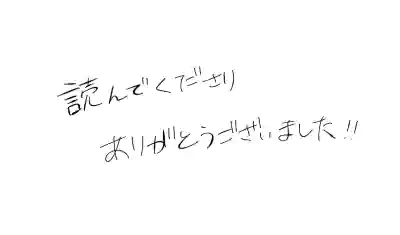 読んでくださり
ありがとうございました!!